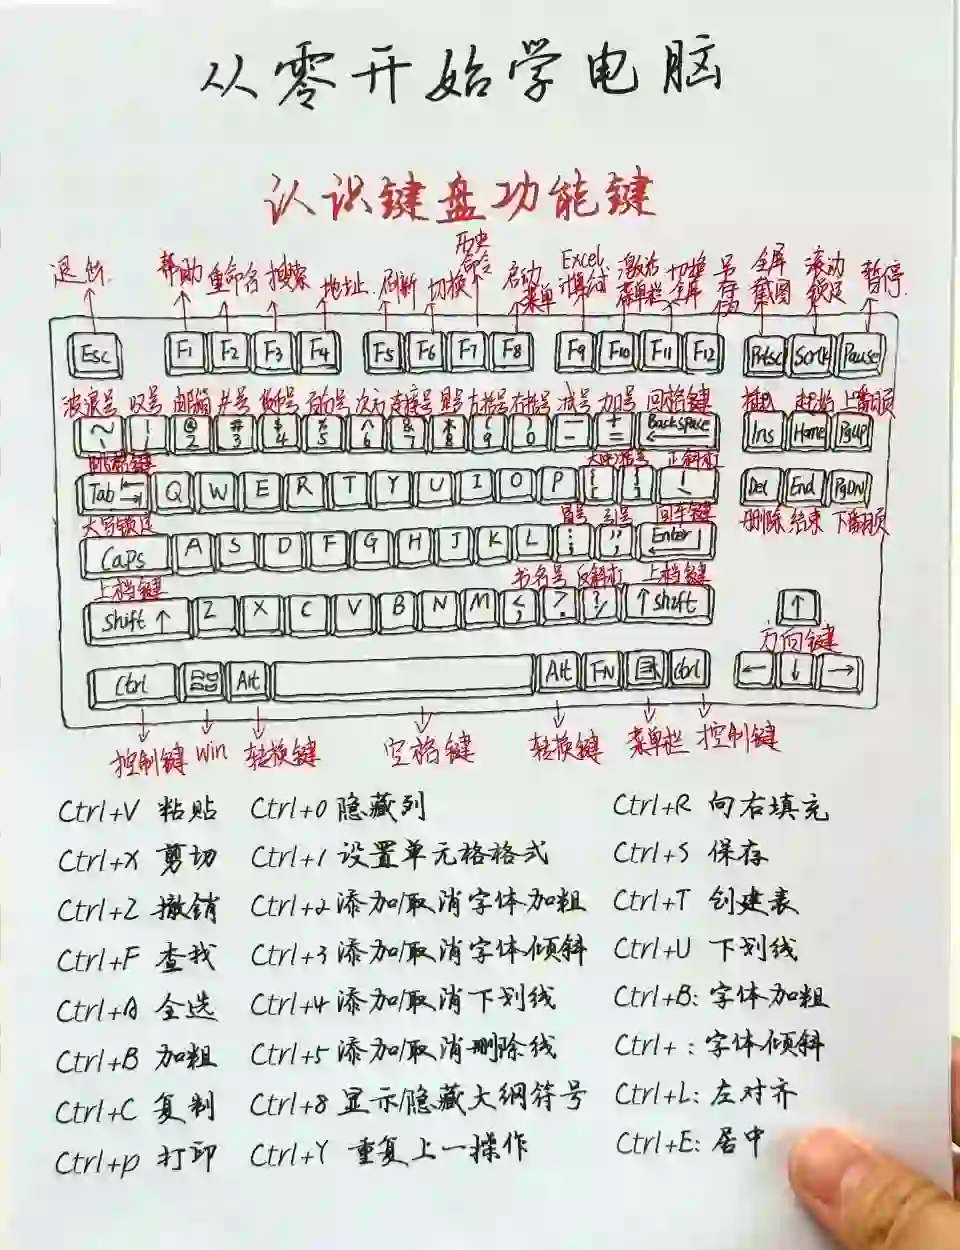 从零开始学电脑
认识键盘功能键
退出 帮助 重命名 搜索 地址 刷新 切换 历史命令 启动菜单 Excel计算结 激活菜单栏 切换全屏 另存为 全屏截图 滚动锁定 暂停
Esc F1 F2 F3 F4 F5 F6 F7 F8 F9 F10 F11 F12 Prtsc Scrlk Pause
波浪号 叹号 邮箱 井号 百分号 次方 连接号 星号 左括号 右括号 减号 加号 回格键 插入 起始 上翻页
~ ! @ 2 # 3 $ 4 % 5 ^ 6 & 7 * 8 ( 9 ) 0 - + = Backspace Ins Home PgUp
大咧括号 正斜杠
Tab Q W E R T Y U I O P [ ] \ Del End PgDN
大写锁定 冒号 引号 回车键 删除 结束 下翻页
Caps A S D F G H J K L : ; " , Enter
上档键 书名号 反斜杠 上档键
Shift ↑ Z X C V B N M < , > . ? / ↑ Shift ↑
方向键
Ctrl Alt Alt FN Ctrl ← ↓ →
控制键 win 转换键 空格键 转换键 菜单栏 控制键
Ctrl+V 粘贴 Ctrl+0 隐藏列 Ctrl+R 向右填充
Ctrl+X 剪切 Ctrl+1 设置单元格格式 Ctrl+S 保存
Ctrl+Z 撤销 Ctrl+2 添加/取消字体加粗 Ctrl+T 创建表
Ctrl+F 查找 Ctrl+3 添加/取消字体倾斜 Ctrl+U 下划线
Ctrl+A 全选 Ctrl+4 添加/取消下划线 Ctrl+B: 字体加粗
Ctrl+B 加粗 Ctrl+5 添加/取消删除线 Ctrl+ : 字体倾斜
Ctrl+C 复制 Ctrl+8 显示/隐藏大纲符号 Ctrl+L: 左对齐
Ctrl+P 打印 Ctrl+Y 重复上一操作 Ctrl+E: 居中